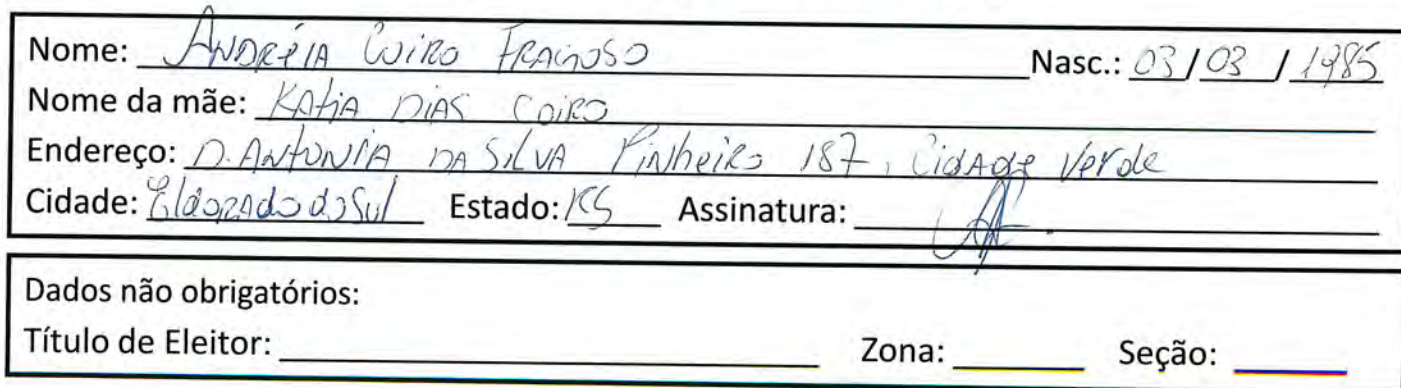 Nome: ANDRÉIA COIRO FRAGOSO Nasc.: 03/03/1985
Nome da mãe: KATIA DIAS COIRO
Endereço: D. ANTONIA DA SILVA PINHEIRO 187, CIDADE VERDE
Cidade: Eldorado do Sul Estado: RS Assinatura:
Dados não obrigatórios:
Título de Eleitor: Zona: Seção: